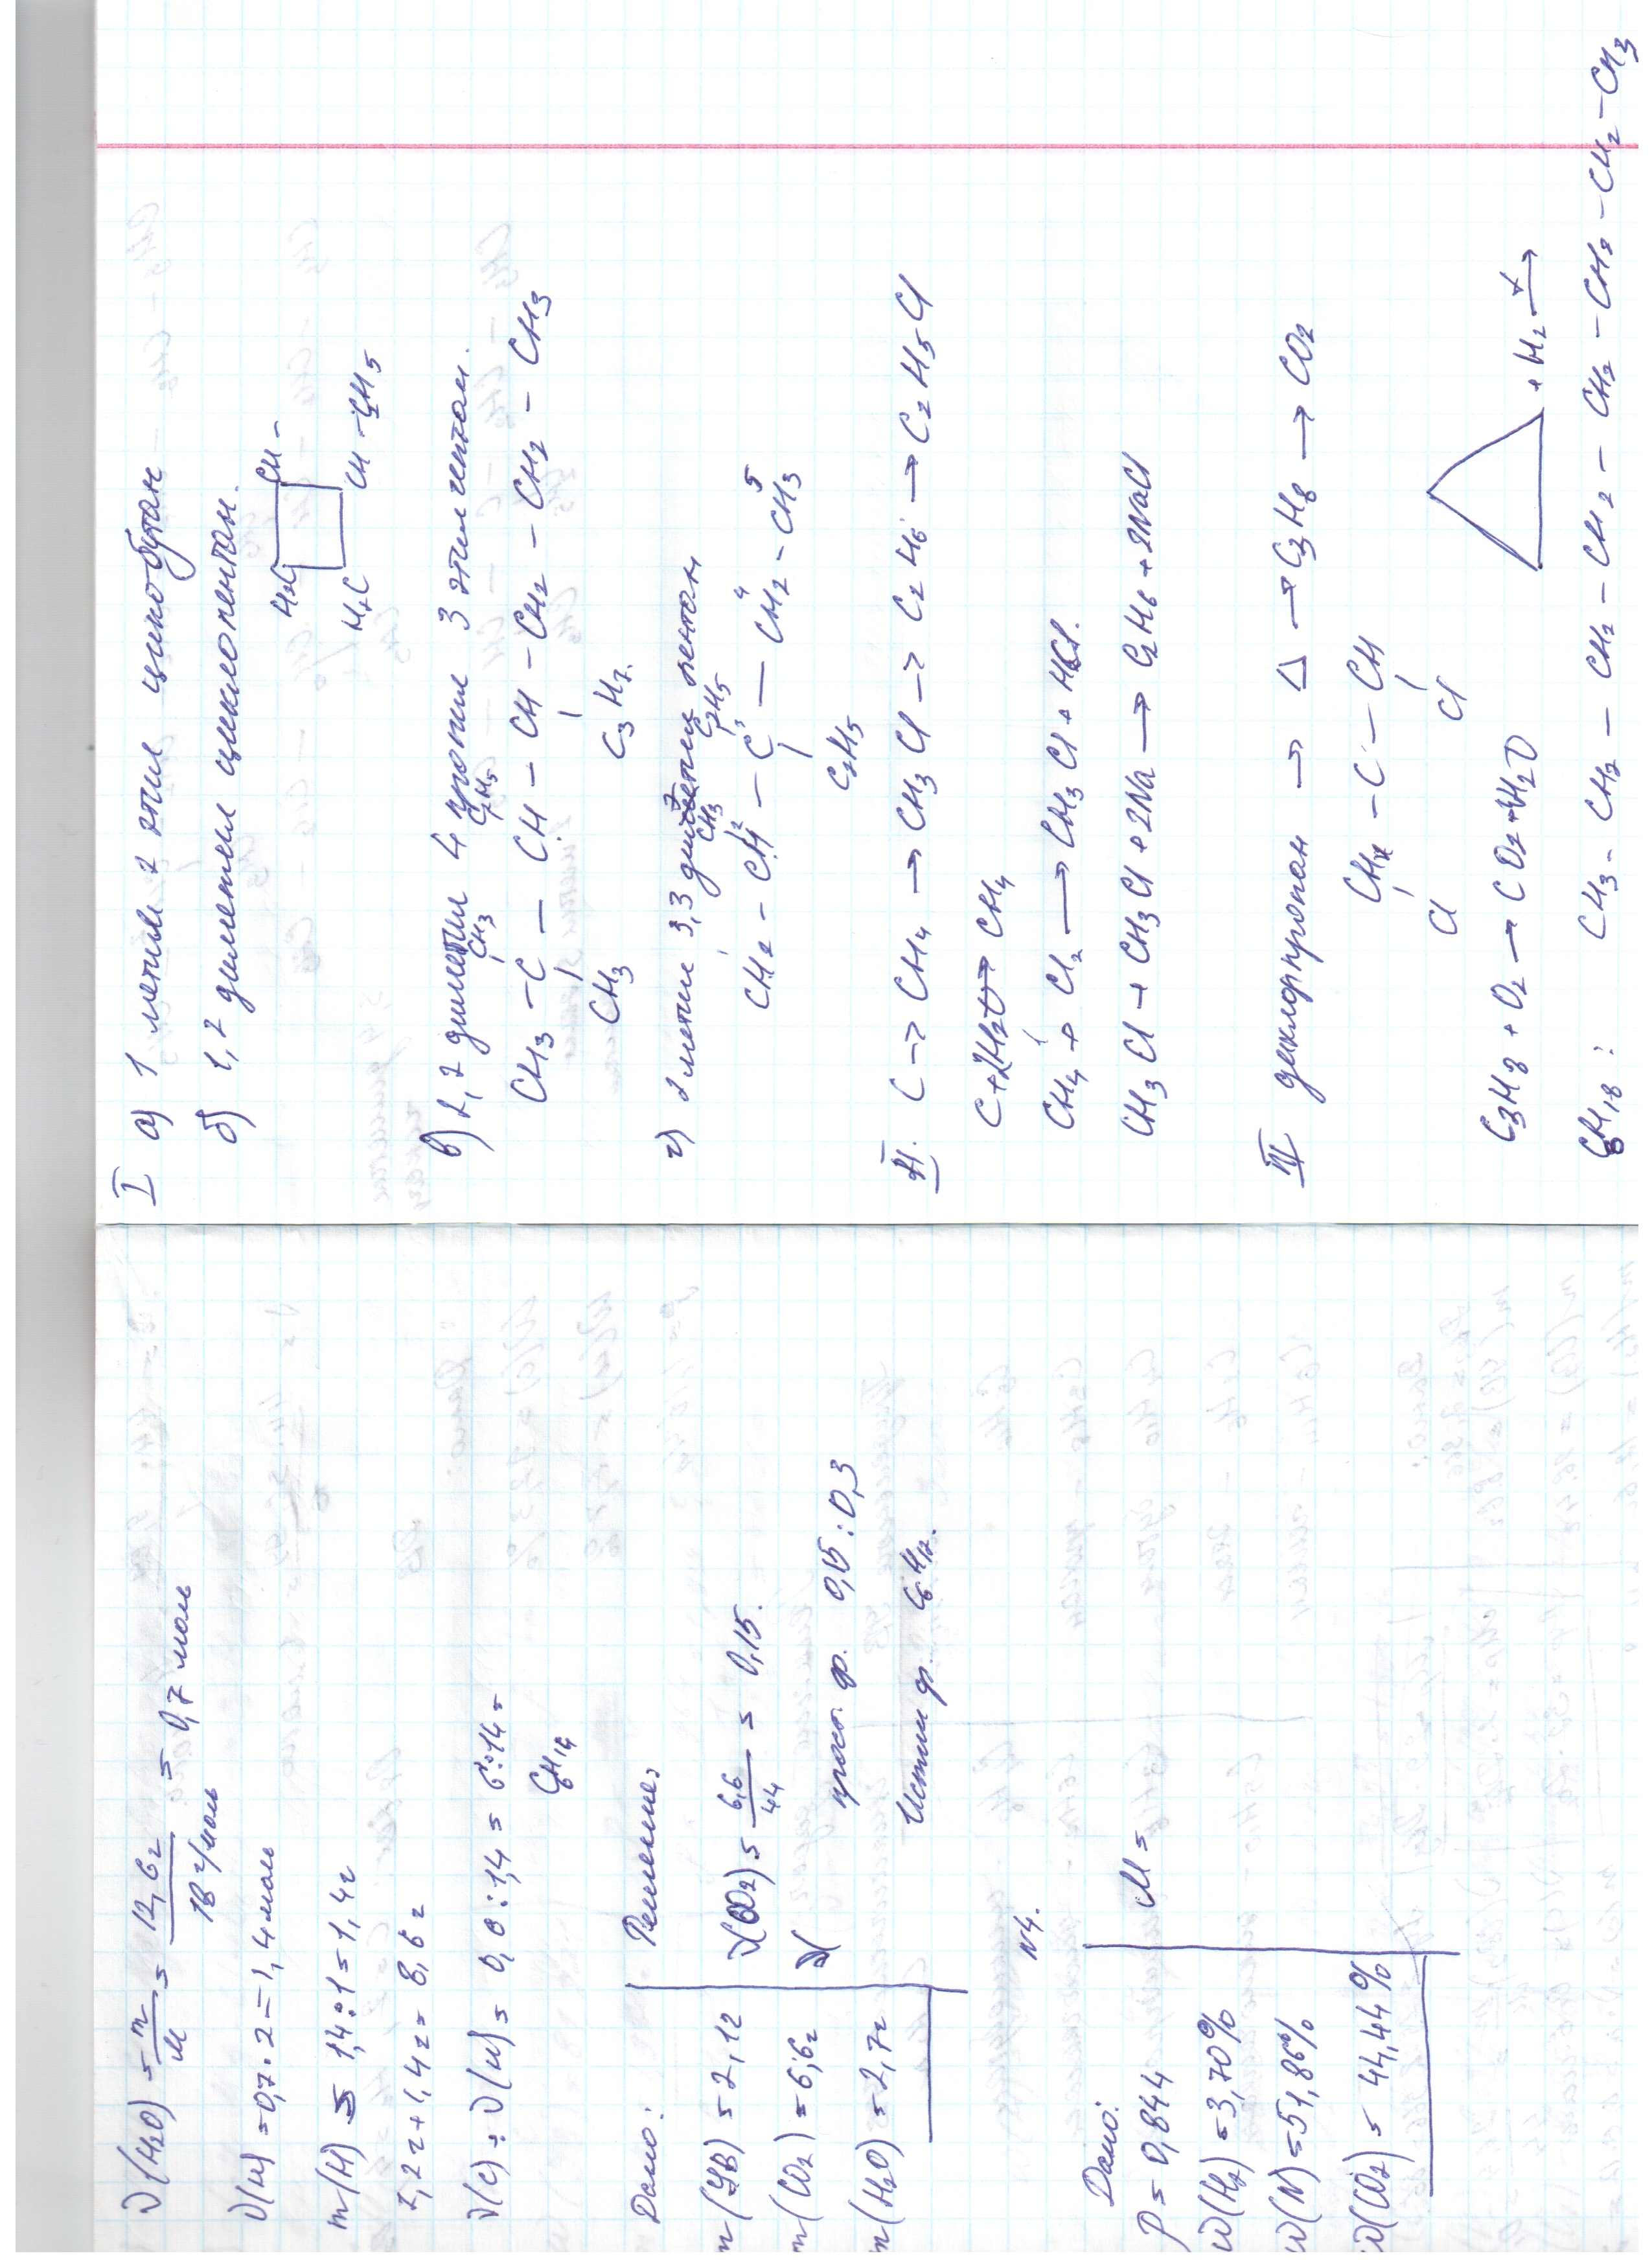 ν(H2O) = m/M = 12,6г / 18 г/моль = 0,7 моль
ν(H) = 0,7 · 2 = 1,4 моль
m(H) = 1,4 : 1 = 1,4г
7,2г + 1,4г = 8,6г
ν(C) : ν(H) = 0,6 : 1,4 = 6 : 14 =
C6H14
Дано:
Решение:
m(УВ) = 2,1г
m(CO2) = 6,6г
m(H2O) = 2,7г
ν(CO2) = 6,6/44 = 0,15.
ν(
прост. ф. 0,15 : 0,3
Истин ф. C6H12.
№4.
Дано:
M =
ρ = 0,844
W(H2) = 3,70%
W(N) = 51,86%
W(CO2) = 44,44%
I а) 1 метил 2 этил циклобутан
б) 1,2 диметил циклопентан.
H2C CH -
H2C CH - C2H5
в) 2,2 диметил 4 пропил 3 этил гептан.
CH3 C2H5
CH3 - C - CH - CH - CH2 - CH2 - CH3
CH3 C3H7
г) 2 метил 3,3 диэтил пентан
CH3 C2H5
1 2 3 4 5
CH2 - CH - C - CH2 - CH3
C2H5
II. C → CH4 → CH3Cl → C2H6 → C2H5Cl
C + 2H2 → CH4
CH4 + Cl2 → CH3Cl + HCl.
CH3Cl + CH3Cl + 2Na → C2H6 + 2NaCl
дихлорпропан → △ → C3H8 → CO2
CH2 - C - CH
Cl Cl
C3H8 + O2 → CO2 + H2O
+ H2 →
C8H18: CH3 - CH2 - CH2 - CH2 - CH2 - CH2 - CH2 - CH3